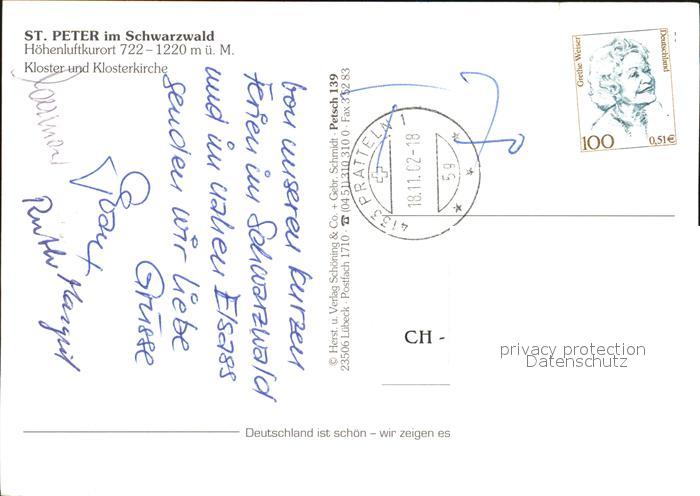 ST. PETER im Schwarzwald
Höhenluftkurort 722–1220 m ü. M.
Kloster und Klosterkirche
von unseren kurzen
Ferien im Schwarzwald
und im nahen Elsass
senden wir liebe
Grüsse
Ruth Margrit
© Herst. u. Verlag Schöning & Co. + Gebr. Schmidt · Petsch 139
23506 Lübeck · Postfach 1710 · ☎ (04 51) 310 310 0 · Fax 3 52 83
4133 PRATTELN 1
18.11.02-18
59
Grethe Weiser
Deutschland
100
0,51€
CH -
privacy protection
Datenschutz
Deutschland ist schön – wir zeigen es